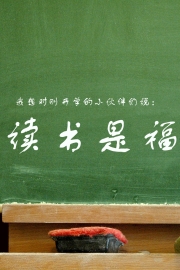 我想对刚开学的小伙伴们说：
读书是福